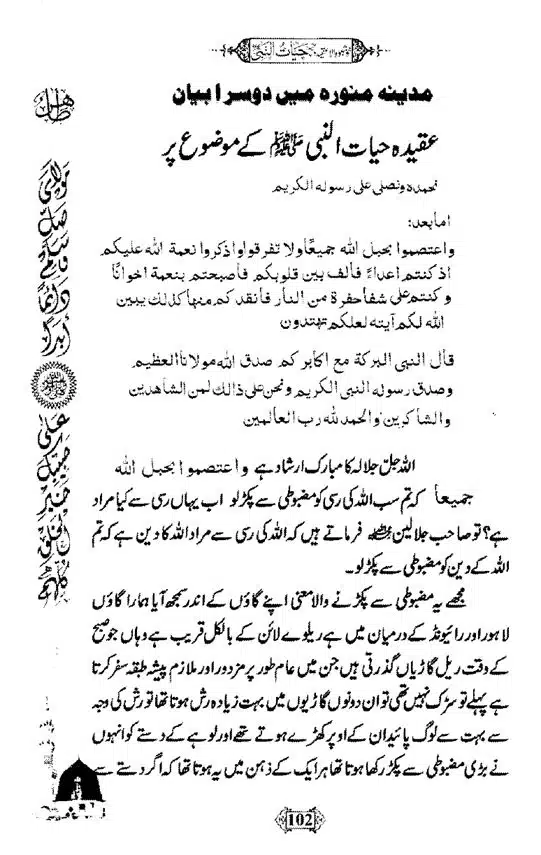 حیات النبی
مدینہ منورہ میں دوسرا بیان
عقیدہ حیات النبی ﷺ کے موضوع پر
نحمدہ ونصلی علی رسولہ الکریم
اما بعد:
واعتصموا بحبل الله جميعًا ولا تفرقوا واذكروا نعمة الله عليكم
اذ كنتم اعداءً فألف بين قلوبكم فأصبحتم بنعمة اخوانًا
وكنتم على شفا حفرة من النار فانقذكم منها كذلك يبين
الله لكم آيته لعلكم تهتدون
قال النبى البركة مع اكابركم صدق الله مولانا العظيم
وصدق رسوله النبى الكريم ونحن على ذالك لمن الشاهدين
والشاكرين والحمد لله رب العالمين
اللہ جل جلالہ کا مبارک ارشاد ہے واعتصموا بحبل الله
جميعاً کہ تم سب اللہ کی رسی کو مضبوطی سے پکڑ لو اب یہاں رسی سے کیا مراد
ہے؟ تو صاحب جلالین فرماتے ہیں کہ اللہ کی رسی سے مراد اللہ کا دین ہے کہ تم
اللہ کے دین کو مضبوطی سے پکڑ لو۔
مجھے یہ مضبوطی سے پکڑنے والا معنی اپنے گاؤں کے اندر سمجھ آیا ہمارا گاؤں
لاہور اور رائیونڈ کے درمیان میں ہے ریلوے لائن کے بالکل قریب ہے وہاں جو صبح
کے وقت ریل گاڑیاں گذرتی ہیں جن میں عام طور پر مزدور اور ملازم پیشہ طبقہ سفر کرتا
ہے پہلے تو سڑک نہیں تھی تو ان دونوں گاڑیوں میں بہت زیادہ رش ہوتا تھا تو رش کی وجہ
سے بہت سے لوگ پائیدان کے اوپر کھڑے ہوتے تھے اور لوہے کے دستے کو انہوں
نے بڑی مضبوطی سے پکڑ رکھا ہوتا تھا ہر ایک کے ذہن میں یہ ہوتا تھا کہ اگر دستے سے
102
مولای صل وسلم دائمًا ابدًا
علی حبیبک خیر الخلق کلهم